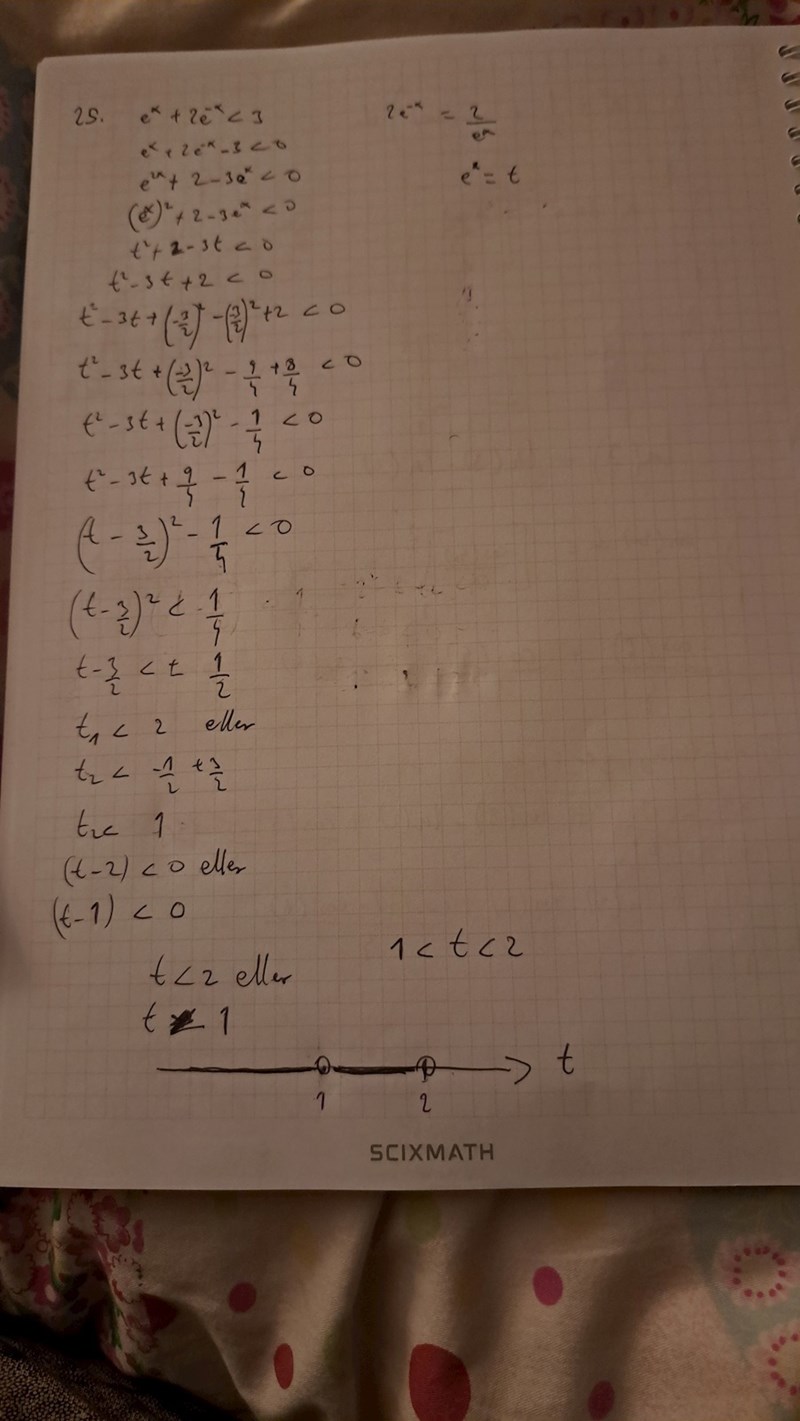 25. eˣ + 2e⁻ˣ < 3 2e⁻ˣ = 2/eˣ
eˣ + 2e⁻ˣ - 3 < 0
e²ˣ + 2 - 3eˣ < 0 eˣ = t
(eˣ)² + 2 - 3eˣ < 0
t² + 2 - 3t < 0
t² - 3t + 2 < 0
t² - 3t + (-3/2)² - (3/2)² + 2 < 0
t² - 3t + (-3/2)² - 9/4 + 8/4 < 0
t² - 3t + (-3/2)² - 1/4 < 0
t² - 3t + 9/4 - 1/4 < 0
(t - 3/2)² - 1/4 < 0
(t - 3/2)² < 1/4
t - 3/2 < ± 1/2
t₁ < 2 eller
t₂ < -1/2 + 3/2
t₂ < 1
(t-2) < 0 eller
(t-1) < 0
1 < t < 2
t < 2 eller
t 1
t
1 2
SCIXMATH